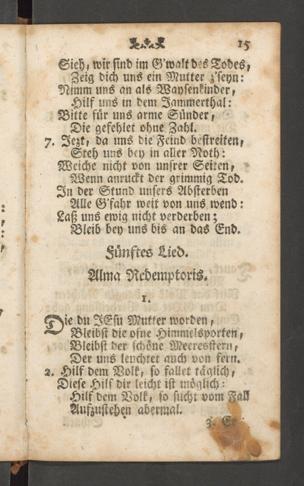 15
Sieh, wir sind im G'walt des Todes,
Zeig dich uns ein Mutter z'seyn:
Nimm uns an als Waysenkinder,
Hilf uns in dem Jammerthal:
Bitte für uns arme Sünder,
Die gefehlet ohne Zahl.
7. Jezt, da uns die Feind bestreiten,
Steh uns bey in aller Noth:
Weiche nicht von unsrer Seiten,
Wenn anruckt der grimmig Tod.
In der Stund unsers Absterben
Alle G'fahr weit von uns wend:
Laß uns ewig nicht verderben;
Bleib bey uns bis an das End.
Fünftes Lied.
Alma Redemptoris.
1.
Die du JEsu Mutter worden,
Bleibst die ofne Himmelsporten,
Bleibst der schöne Meerestern,
Der uns leuchtet auch von fern.
2. Hilf dem Volk, so fallet täglich,
Diese Hilf dir leicht ist möglich:
Hilf dem Volk, so sucht vom Fall
Aufzustehen abermal.
3.